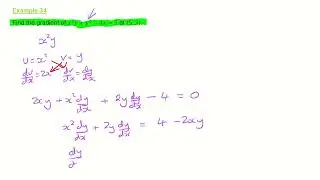 Example 24
Find the gradient of
x²y
u = x² v = y
du/dx = 2x dv/dx = dy/dx
2xy + x² dy/dx + 2y dy/dx - 4 = 0
x² dy/dx + 2y dy/dx = 4 - 2xy
dy